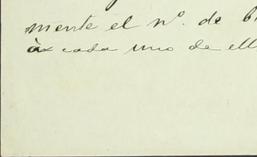 mente el nº. de
a cada uno de